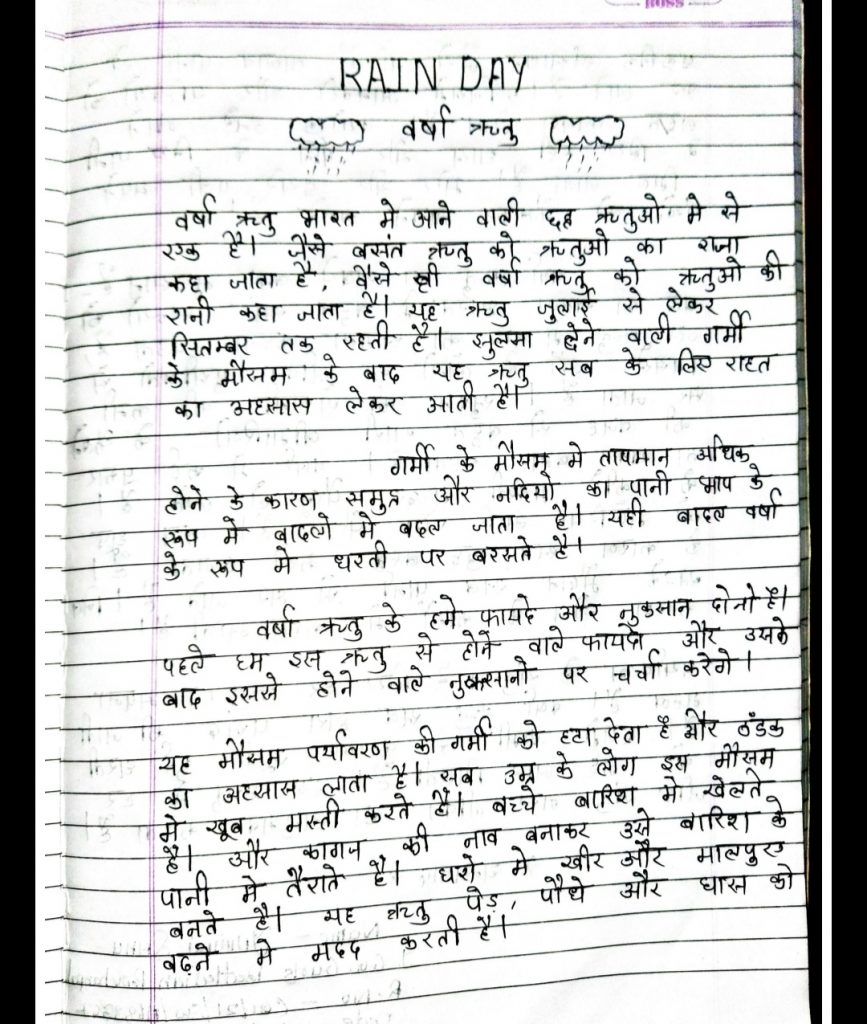 RAIN DAY
वर्षा ऋतु
वर्षा ऋतु भारत मे आने वाली छह ऋतुओ मे से
एक है। जैसे बसंत ऋतु को ऋतुओ का राजा
कहा जाता है, वैसे ही वर्षा ऋतु को ऋतुओ की
रानी कहा जाता है। यह ऋतु जुलाई से लेकर
सितम्बर तक रहती है। झुलसा देने वाली गर्मी
के मौसम के बाद यह ऋतु सब के लिए राहत
का अहसास लेकर आती है।
गर्मी के मौसम मे तापमान अधिक
होने के कारण समुद्र और नदियो का पानी भाप के
रूप मे बादलो मे बदल जाता है। यही बादल वर्षा
के रूप मे धरती पर बरसते है।
वर्षा ऋतु के हमे फायदे और नुकसान दोनो है।
पहले हम इस ऋतु से होने वाले फायदे और उसके
बाद इससे होने वाले नुकसानो पर चर्चा करेगे।
यह मौसम पर्यावरण की गर्मी को हटा देता है और ठंडक
का अहसास लाता है। सब उम्र के लोग इस मौसम
मे खूब मस्ती करते है। बच्चे बारिश मे खेलते
है। और कागज की नाव बनाकर उसे बारिश के
पानी मे तैराते है। घरो मे खीर और मालपुए
बनते है। यह ऋतु पेड़, पौधे और घास को
बढ़ने मे मदद करती है।